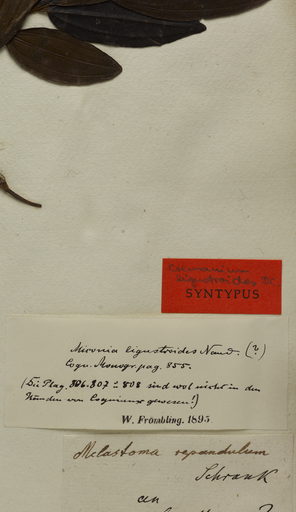 Cremanium
ligustroides DC
SYNTYPUS
Miconia ligustroides Naud. (?)
Cogn. Monogr. pag. 855.
(Die Plag. 806. 807 u 808 sind wol nicht in den
Händen von Cogniaux gewesen!)
W. Frömbling. 1895
Melastoma repandulum
Schrank
an
?